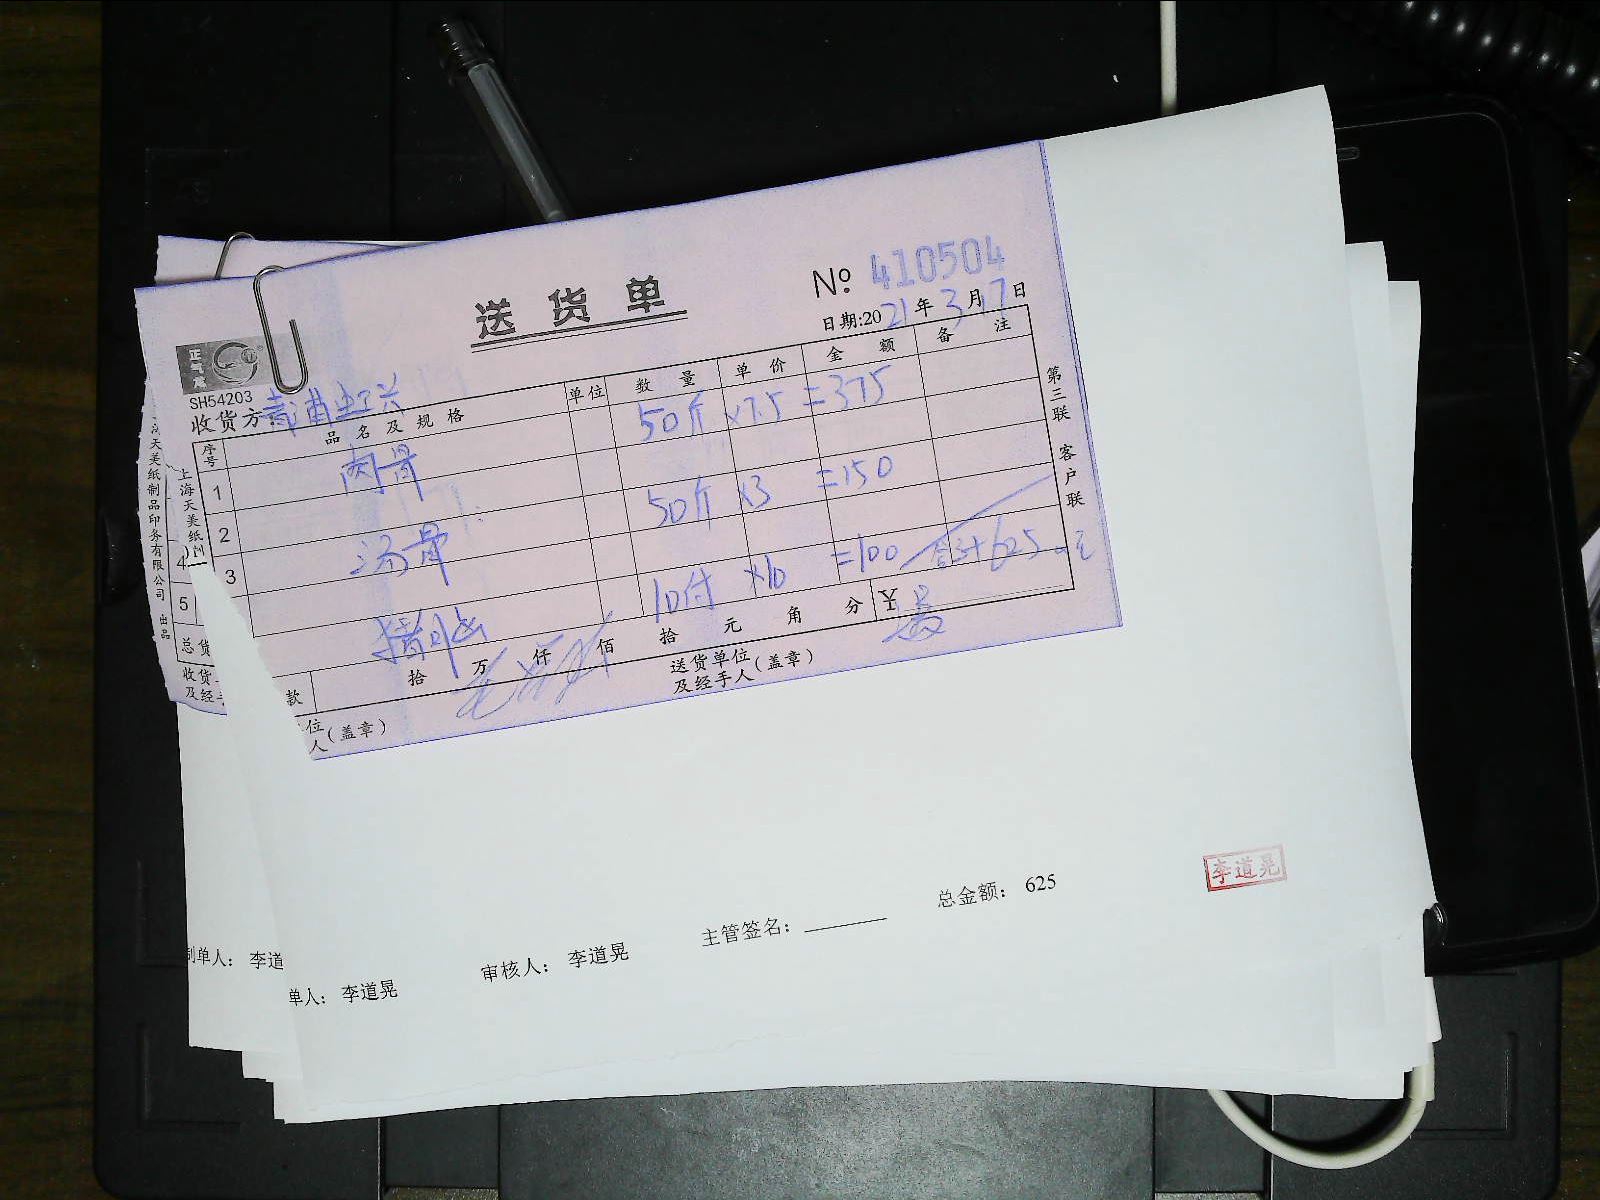 送货单
№ 410504
日期:2021年3月17日
正气龙
SH54203
收货方:
序号 品名及规格 单位 数量 单价 金额 备注
1 肉骨 50斤 ×7.5 =375
2 汤骨 50斤 ×3 =150
3 猪 10付 ×10 =100 合计625元
4
5
款 拾 万 仟 佰 拾 元 角 分 ¥
总货
收货
及经手
位
人(盖章)
送货单位
及经手人(盖章)
第三联 客户联
上海天美纸制
天美纸制品印务有限公司 出品
总金额: 625
李道晃
主管签名:
审核人: 李道晃
单人: 李道晃
制单人: 李道